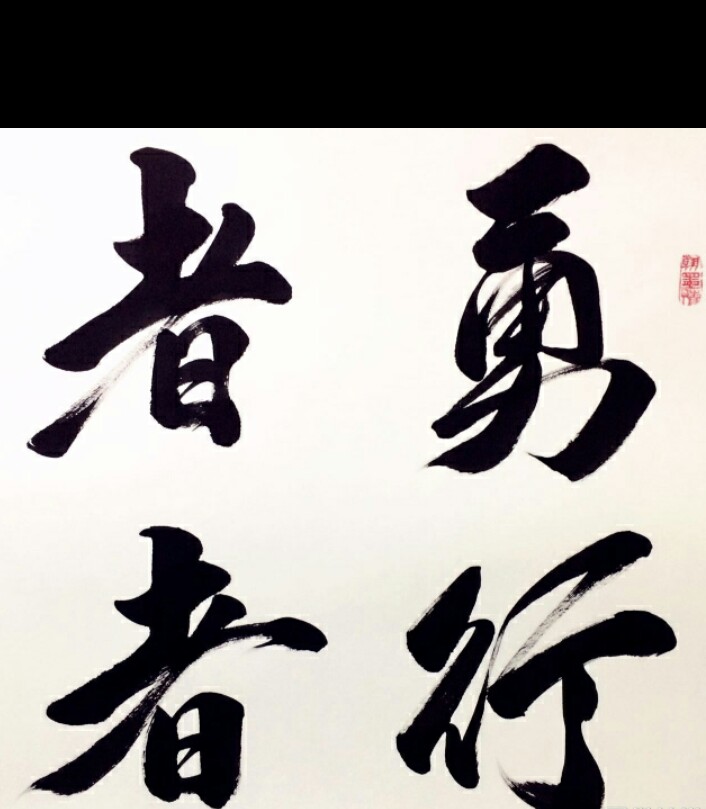 勇者
行者